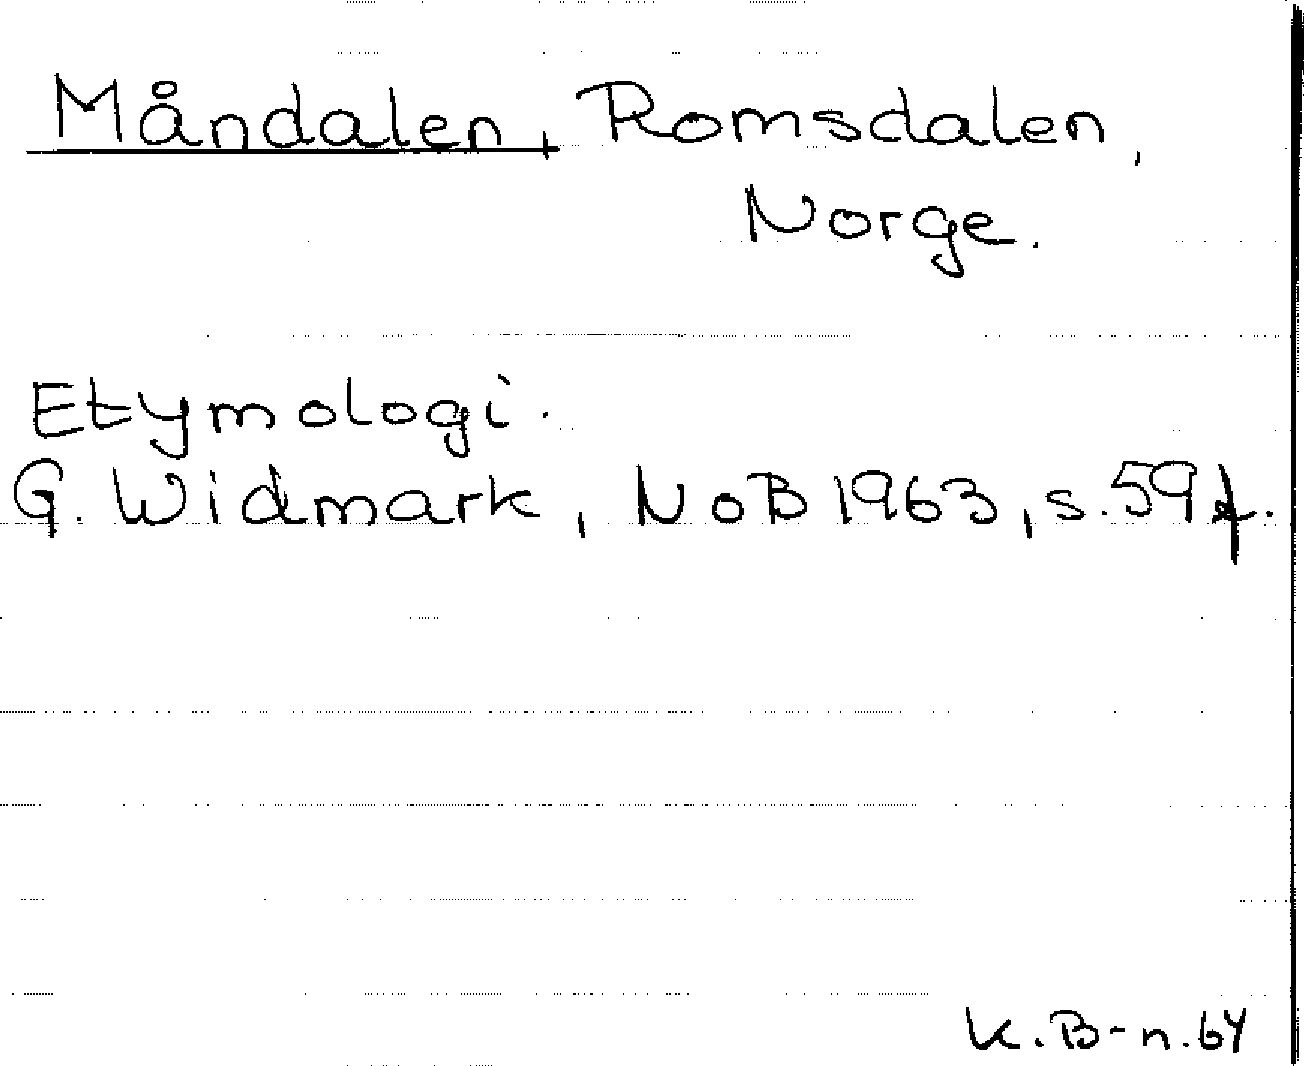 Måndalen, Romsdalen,
Norge.
Etymologi.
G. Widmark, NoB 1963, s. 59 f.
K.B-n. 64